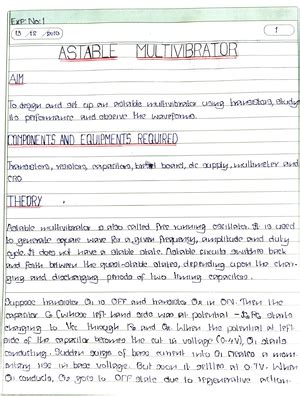 Exp. No: 1
13
1
ASTABLE MULTIVIBRATOR
AIM
To design and set up an astable multivibrator using transistors, study
its performance and observe the waveforms.
COMPONENTS AND EQUIPMENTS REQUIRED
Transistors, resistors, capacitors, board, dc supply, multimeter and
CRO
THEORY
Astable multivibrator is also called free running oscillator. It is used
to generate square wave for a given frequency, amplitude and duty
cycle. It does not have a stable state. Astable circuits switch back
and forth between the quasi-stable states, depending upon the char-
ging and discharging periods of two timing capacitors.
Suppose transistor Q1 is OFF and transistor Q2 is ON. Then the
capacitor C1 (whose left hand side was at potential
charging to Vcc through When the potential at left
side of the capacitor becomes the cut in voltage Q1 starts
conducting. Sudden surge of base current into Q1 creates a mom-
entary rise in base voltage. But soon it settles at 0.7V. When
Q1 conducts, Q2 goes to OFF state due to regenerative action.